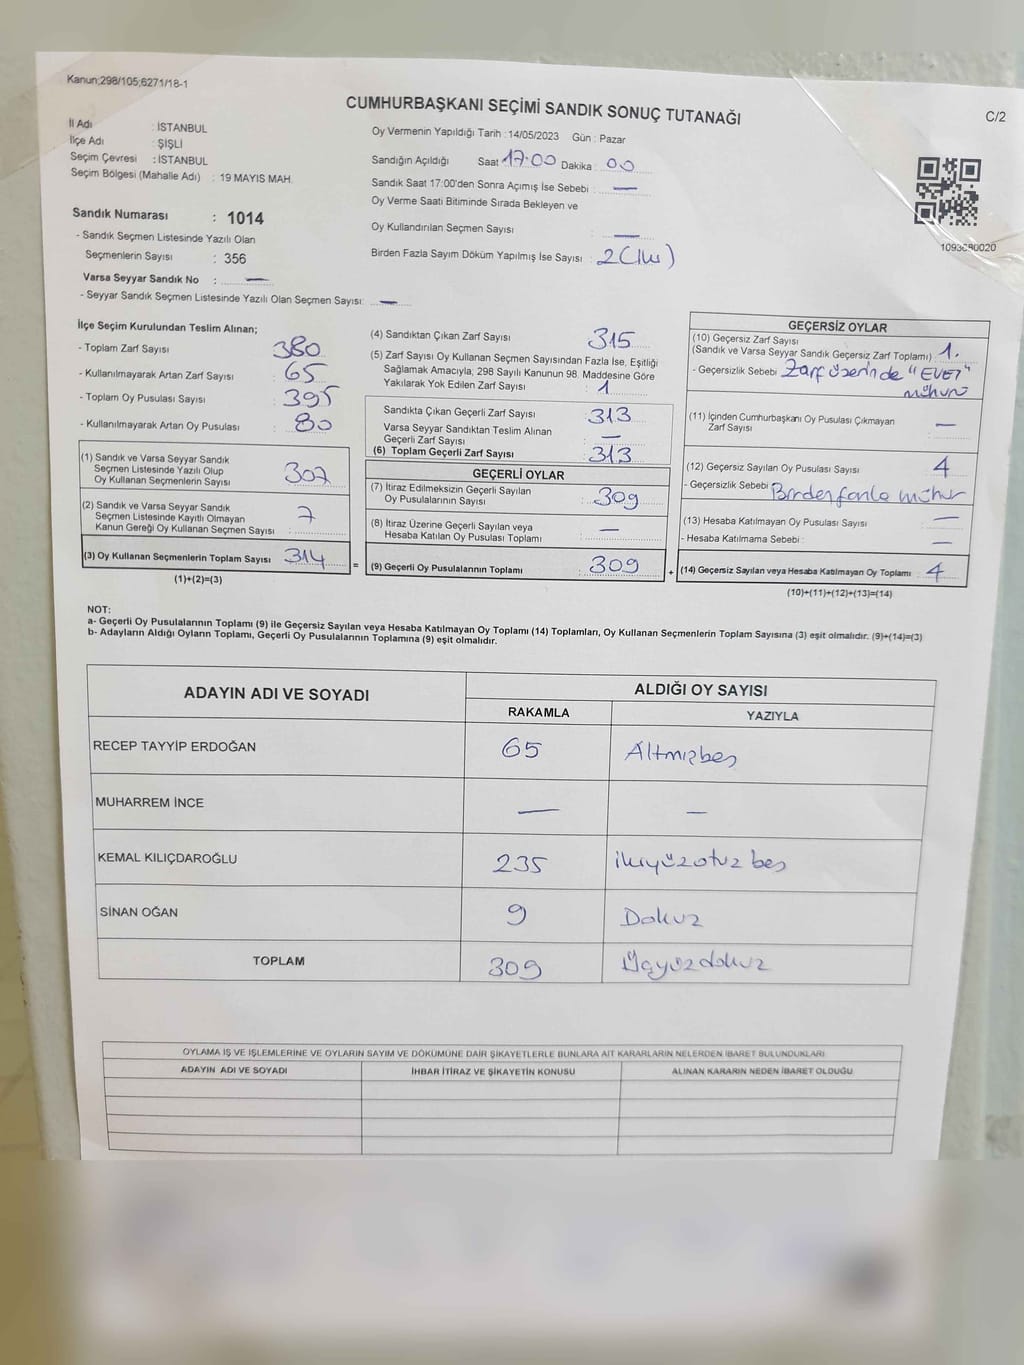 Kanun;298/105;6271/18-1
CUMHURBAŞKANI SEÇİMİ SANDIK SONUÇ TUTANAĞI
C/2
İl Adı : İSTANBUL
İlçe Adı : ŞİŞLİ
Seçim Çevresi : İSTANBUL
Seçim Bölgesi (Mahalle Adı) : 19 MAYIS MAH.
Sandık Numarası : 1014
- Sandık Seçmen Listesinde Yazılı Olan
Seçmenlerin Sayısı : 356
Varsa Seyyar Sandık No : —
- Seyyar Sandık Seçmen Listesinde Yazılı Olan Seçmen Sayısı: —
Oy Vermenin Yapıldığı Tarih : 14/05/2023 Gün : Pazar
Sandığın Açıldığı Saat 17:00 Dakika : 00
Sandık Saat 17:00'den Sonra Açımış İse Sebebi : —
Oy Verme Saati Bitiminde Sırada Bekleyen ve
Oy Kullandırılan Seçmen Sayısı : —
Birden Fazla Sayım Döküm Yapılmış İse Sayısı : 2 (İki)
1093680020
İlçe Seçim Kurulundan Teslim Alınan;
- Toplam Zarf Sayısı : 380
- Kullanılmayarak Artan Zarf Sayısı : 65
- Toplam Oy Pusulası Sayısı : 395
- Kullanılmayarak Artan Oy Pusulası : 80
(1) Sandık ve Varsa Seyyar Sandık
Seçmen Listesinde Yazılı Olup
Oy Kullanan Seçmenlerin Sayısı : 307
(2) Sandık ve Varsa Seyyar Sandık
Seçmen Listesinde Kayıtlı Olmayan
Kanun Gereği Oy Kullanan Seçmen Sayısı : 7
(3) Oy Kullanan Seçmenlerin Toplam Sayısı : 314 =
(1)+(2)=(3)
(4) Sandıktan Çıkan Zarf Sayısı : 315
(5) Zarf Sayısı Oy Kullanan Seçmen Sayısından Fazla İse, Eşitliği
Sağlamak Amacıyla; 298 Sayılı Kanunun 98. Maddesine Göre
Yakılarak Yok Edilen Zarf Sayısı : 1
Sandıkta Çıkan Geçerli Zarf Sayısı : 313
Varsa Seyyar Sandıktan Teslim Alınan
Geçerli Zarf Sayısı : —
(6) Toplam Geçerli Zarf Sayısı : 313
GEÇERLİ OYLAR
(7) İtiraz Edilmeksizin Geçerli Sayılan
Oy Pusulalarının Sayısı : 309
(8) İtiraz Üzerine Geçerli Sayılan veya
Hesaba Katılan Oy Pusulası Toplamı : —
(9) Geçerli Oy Pusulalarının Toplamı : 309 +
GEÇERSİZ OYLAR
(10) Geçersiz Zarf Sayısı
(Sandık ve Varsa Seyyar Sandık Geçersiz Zarf Toplamı) : 1.
- Geçersizlik Sebebi : Zarf üzerinde "EVET"
mührü
(11) İçinden Cumhurbaşkanı Oy Pusulası Çıkmayan
Zarf Sayısı : —
(12) Geçersiz Sayılan Oy Pusulası Sayısı : 4
- Geçersizlik Sebebi : Birden fazla mühür
(13) Hesaba Katılmayan Oy Pusulası Sayısı : —
- Hesaba Katılmama Sebebi : —
(14) Geçersiz Sayılan veya Hesaba Katılmayan Oy Toplamı : 4
(10)+(11)+(12)+(13)=(14)
NOT:
a- Geçerli Oy Pusulalarının Toplamı (9) ile Geçersiz Sayılan veya Hesaba Katılmayan Oy Toplamı (14) Toplamları, Oy Kullanan Seçmenlerin Toplam Sayısına (3) eşit olmalıdır. (9)+(14)=(3)
b- Adayların Aldığı Oyların Toplamı, Geçerli Oy Pusulalarının Toplamına (9) eşit olmalıdır.
ADAYIN ADI VE SOYADI
ALDIĞI OY SAYISI
RAKAMLA YAZIYLA
RECEP TAYYİP ERDOĞAN 65 Altmışbeş
MUHARREM İNCE — —
KEMAL KILIÇDAROĞLU 235 ikiyüzotuz beş
SİNAN OĞAN 9 Dokuz
TOPLAM 309 Üçyüzdokuz
OYLAMA İŞ VE İŞLEMLERİNE VE OYLARIN SAYIM VE DÖKÜMÜNE DAİR ŞİKAYETLERLE BUNLARA AİT KARARLARIN NELERDEN İBARET BULUNDUKLARI
ADAYIN ADI VE SOYADI İHBAR İTİRAZ VE ŞİKAYETİN KONUSU ALINAN KARARIN NEDEN İBARET OLDUĞU